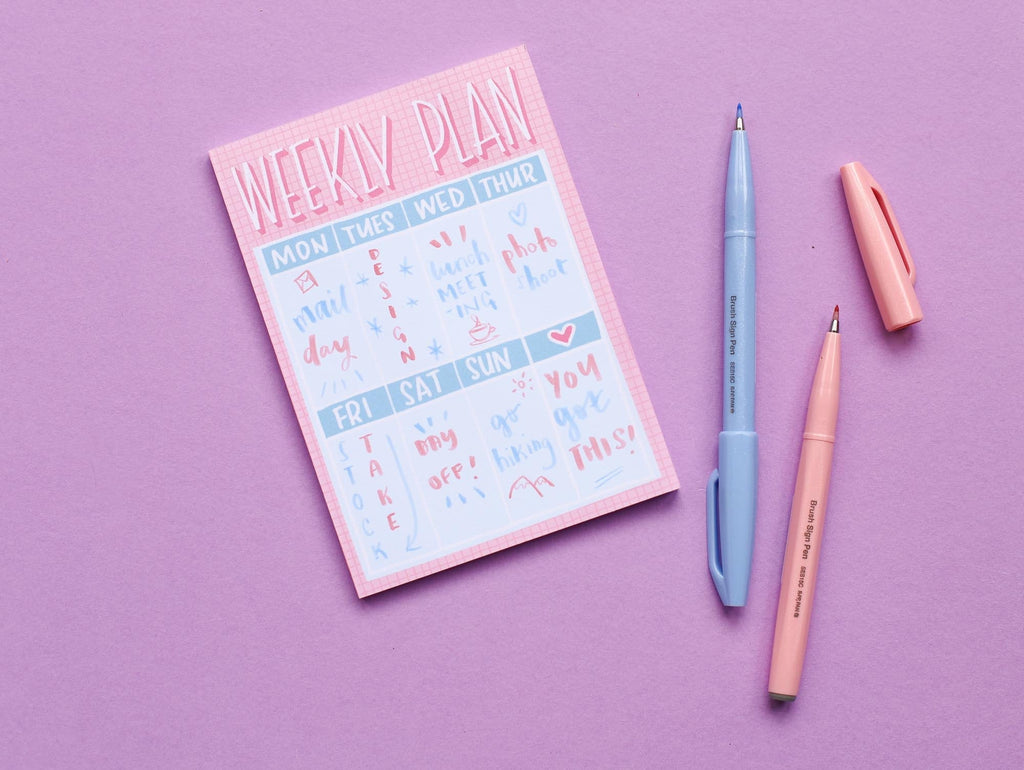 WEEKLY PLAN
MON TUES WED THUR
mail
day
DESIGN
lunch
MEET
-ING
photo
shoot
FRI SAT SUN
STOCK
TAKE
DAY
OFF!
go
hiking
YOU
got
THIS!
Brush Sign Pen SES15C
Brush Sign Pen SES15C